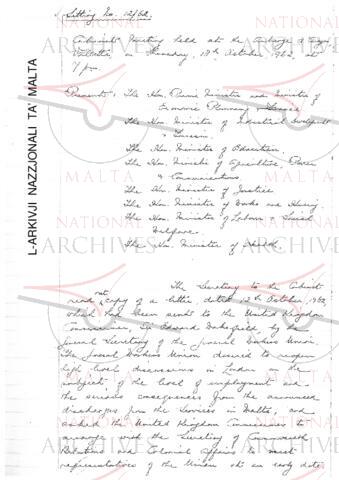 Sitting No. 12/62.
Cabinet Meeting held at the Auberge d'Aragon
Valletta, on Thursday, 18th October, 1962, at
7 p.m.
Present: The Hon. Prime Minister and Minister of
Economic Planning & Finance
The Hon. Minister of Industrial Development
& Tourism
The Hon. Minister of Education
The Hon. Minister of Agriculture, Power
& Communications
The Hon. Minister of Justice
The Hon. Minister of Works and Housing
The Hon. Minister of Labour & Social
Welfare
The Hon. Minister of Health
The Secretary to the Cabinet
read out copy of a letter, dated 12th October, 1962,
which had been sent to the United Kingdom
Commissioner, Sir Edward Wakefield, by the
General Secretary of the General Workers Union.
The General Workers Union desired to reopen
high level discussions in London on the
subject of the level of employment and
the serious consequences from the announced
discharges from the Services in Malta, and
asked the United Kingdom Commissioner to
the Secretary of Commonwealth
Relations and Colonial Affairs to meet
representatives of the Union at an early date
L-ARKIVJI NAZZJONALI TA' MALTA
NATIONAL ARCHIVES